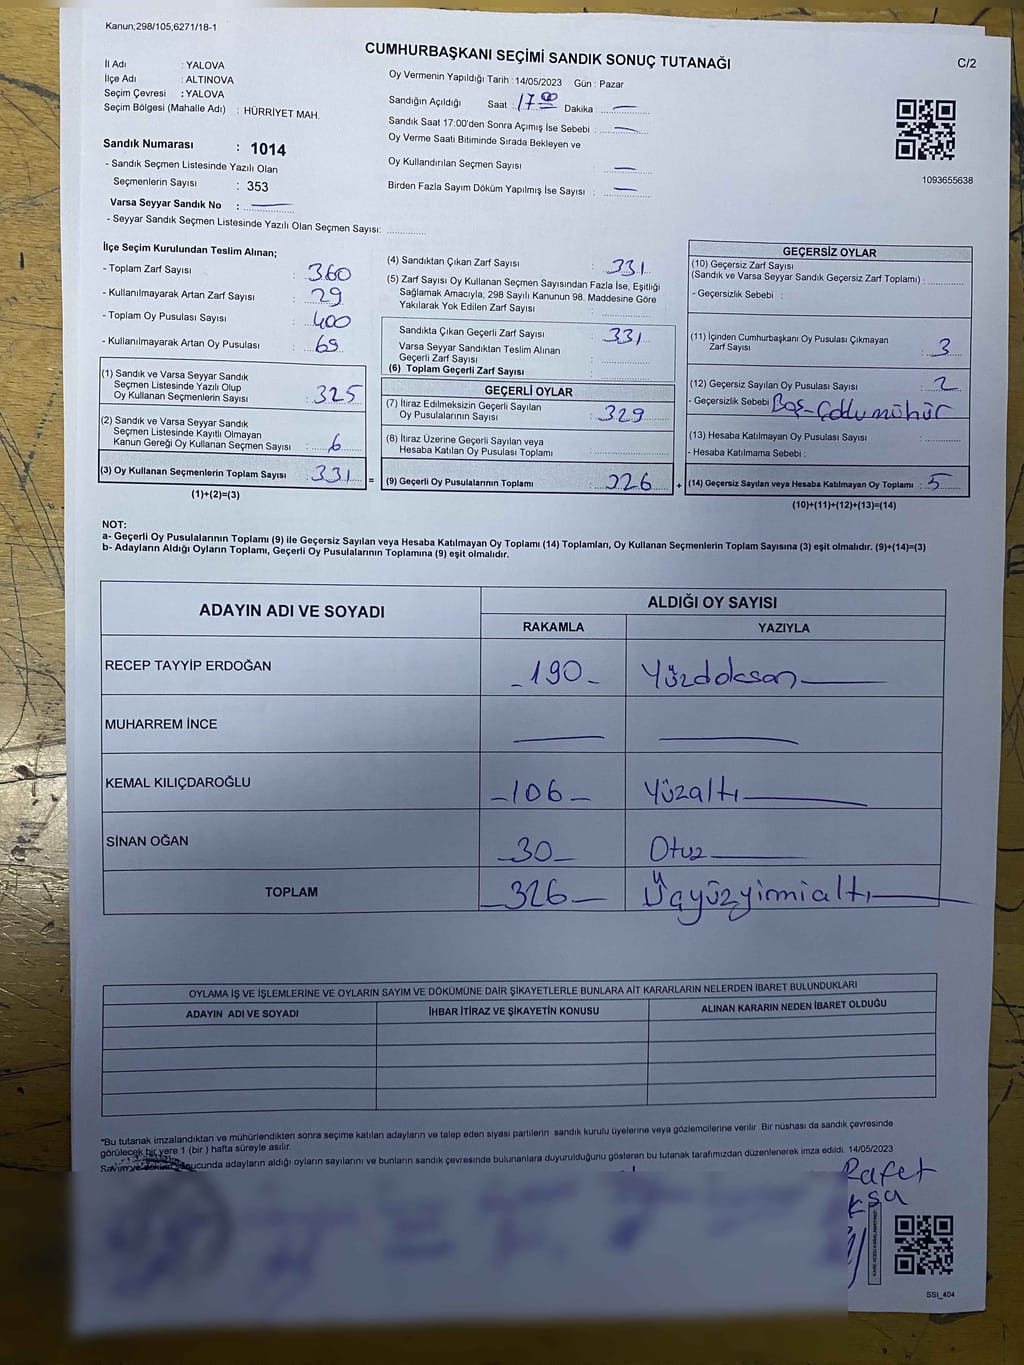 Kanun,298/105,6271/18-1
CUMHURBAŞKANI SEÇİMİ SANDIK SONUÇ TUTANAĞI
C/2
İl Adı : YALOVA
İlçe Adı : ALTINOVA
Seçim Çevresi : YALOVA
Seçim Bölgesi (Mahalle Adı) : HÜRRİYET MAH.
Sandık Numarası : 1014
- Sandık Seçmen Listesinde Yazılı Olan
Seçmenlerin Sayısı : 353
Varsa Seyyar Sandık No : —
- Seyyar Sandık Seçmen Listesinde Yazılı Olan Seçmen Sayısı: ..............
Oy Vermenin Yapıldığı Tarih : 14/05/2023 Gün : Pazar
Sandığın Açıldığı Saat : 17 00 Dakika : —
Sandık Saat 17:00'den Sonra Açımış İse Sebebi : —
Oy Verme Saati Bitiminde Sırada Bekleyen ve
Oy Kullandırılan Seçmen Sayısı : —
Birden Fazla Sayım Döküm Yapılmış İse Sayısı : —
1093655638
İlçe Seçim Kurulundan Teslim Alınan;
- Toplam Zarf Sayısı : 360
- Kullanılmayarak Artan Zarf Sayısı : 29
- Toplam Oy Pusulası Sayısı : 400
- Kullanılmayarak Artan Oy Pusulası : 69
(1) Sandık ve Varsa Seyyar Sandık
Seçmen Listesinde Yazılı Olup
Oy Kullanan Seçmenlerin Sayısı : 325
(2) Sandık ve Varsa Seyyar Sandık
Seçmen Listesinde Kayıtlı Olmayan
Kanun Gereği Oy Kullanan Seçmen Sayısı : 6
(3) Oy Kullanan Seçmenlerin Toplam Sayısı : 331 =
(1)+(2)=(3)
(4) Sandıktan Çıkan Zarf Sayısı : 331
(5) Zarf Sayısı Oy Kullanan Seçmen Sayısından Fazla İse, Eşitliği
Sağlamak Amacıyla; 298 Sayılı Kanunun 98. Maddesine Göre
Yakılarak Yok Edilen Zarf Sayısı :
Sandıkta Çıkan Geçerli Zarf Sayısı : 331
Varsa Seyyar Sandıktan Teslim Alınan
Geçerli Zarf Sayısı :
(6) Toplam Geçerli Zarf Sayısı :
GEÇERLİ OYLAR
(7) İtiraz Edilmeksizin Geçerli Sayılan
Oy Pusulalarının Sayısı : 329
(8) İtiraz Üzerine Geçerli Sayılan veya
Hesaba Katılan Oy Pusulası Toplamı :
(9) Geçerli Oy Pusulalarının Toplamı : 326 +
GEÇERSİZ OYLAR
(10) Geçersiz Zarf Sayısı
(Sandık ve Varsa Seyyar Sandık Geçersiz Zarf Toplamı) :
- Geçersizlik Sebebi :
(11) İçinden Cumhurbaşkanı Oy Pusulası Çıkmayan
Zarf Sayısı : 3
(12) Geçersiz Sayılan Oy Pusulası Sayısı : 2
- Geçersizlik Sebebi Boş-Çoklu mühür
(13) Hesaba Katılmayan Oy Pusulası Sayısı :
- Hesaba Katılmama Sebebi :
(14) Geçersiz Sayılan veya Hesaba Katılmayan Oy Toplamı : 5
(10)+(11)+(12)+(13)=(14)
NOT:
a- Geçerli Oy Pusulalarının Toplamı (9) ile Geçersiz Sayılan veya Hesaba Katılmayan Oy Toplamı (14) Toplamları, Oy Kullanan Seçmenlerin Toplam Sayısına (3) eşit olmalıdır. (9)+(14)=(3)
b- Adayların Aldığı Oyların Toplamı, Geçerli Oy Pusulalarının Toplamına (9) eşit olmalıdır.
ADAYIN ADI VE SOYADI
ALDIĞI OY SAYISI
RAKAMLA YAZIYLA
RECEP TAYYİP ERDOĞAN -190- Yüzdoksan—
MUHARREM İNCE — —
KEMAL KILIÇDAROĞLU -106- Yüzaltı—
SİNAN OĞAN -30- Otuz—
TOPLAM -326- Üçyüzyirmialtı—
OYLAMA İŞ VE İŞLEMLERİNE VE OYLARIN SAYIM VE DÖKÜMÜNE DAİR ŞİKAYETLERLE BUNLARA AİT KARARLARIN NELERDEN İBARET BULUNDUKLARI
ADAYIN ADI VE SOYADI İHBAR İTİRAZ VE ŞİKAYETİN KONUSU ALINAN KARARIN NEDEN İBARET OLDUĞU
*Bu tutanak imzalandıktan ve mühürlendikten sonra seçime katılan adayların ve talep eden siyasi partilerin sandık kurulu üyelerine veya gözlemcilerine verilir Bir nüshası da sandık çevresinde
görülecek bir yere 1 (bir ) hafta süreyle asılır.
Sayım ve döküm sonucunda adayların aldığı oyların sayılarını ve bunların sandık çevresinde bulunanlara duyurulduğunu gösteren bu tutanak tarafımızdan düzenlenerek imza edildi. 14/05/2023
Rafet
SSİ_404